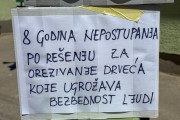 8 GODINA NEPOSTUPANJA
PO REŠENJU ZA
OREZIVANJE DRVEĆA
KOJE UGROŽAVA
BEZBEDNOST LJUDI